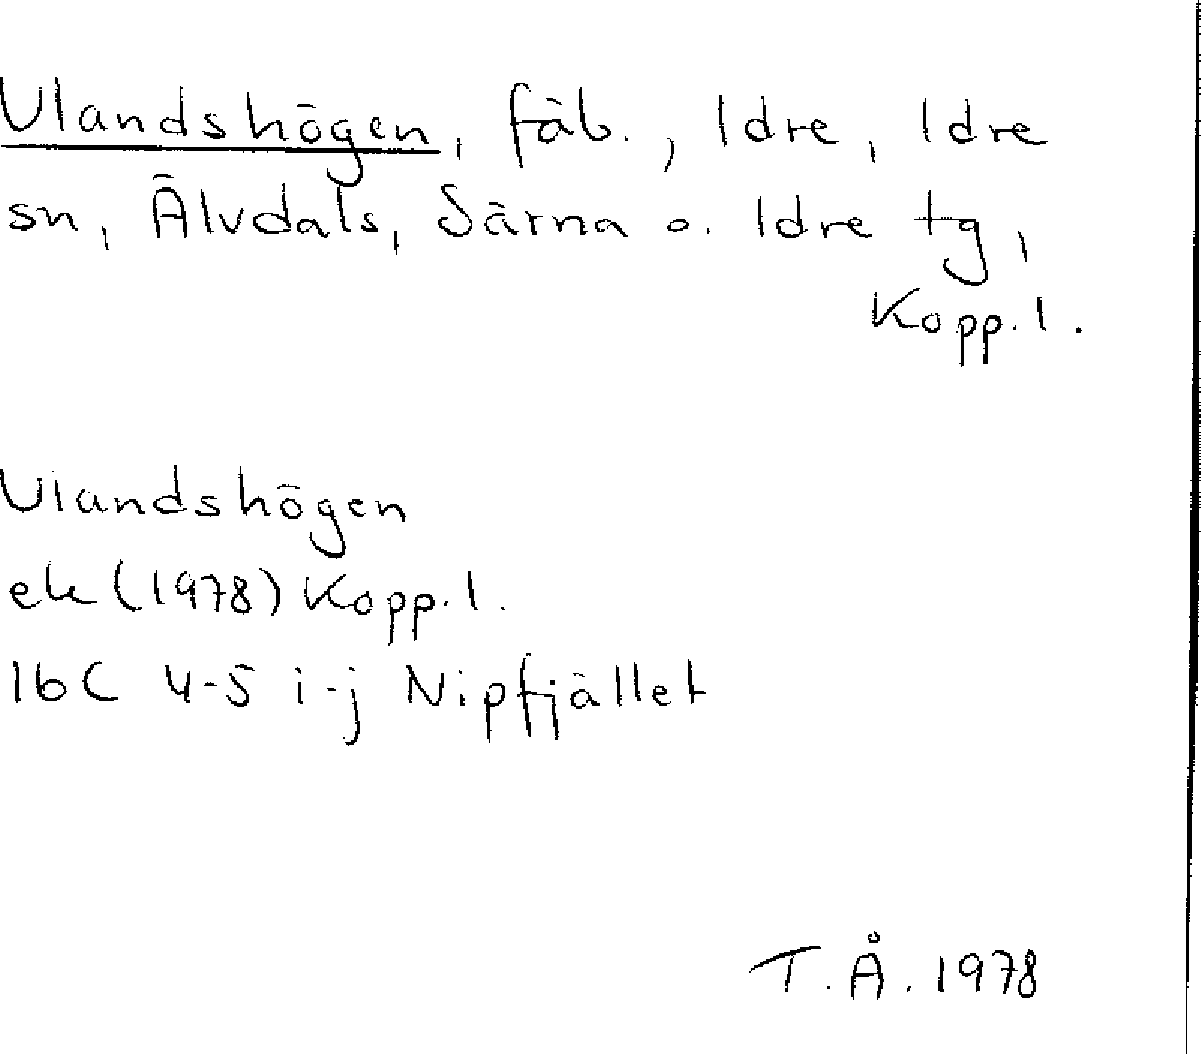 Ulandshögen, fäb., Idre, Idre
sn, Älvdals, Särna o. Idre tg,
Kopp. l.
Ulandshögen
ek (1978) Kopp. l.
16C 4-5 i-j Nipfjället
T.Å. 1978